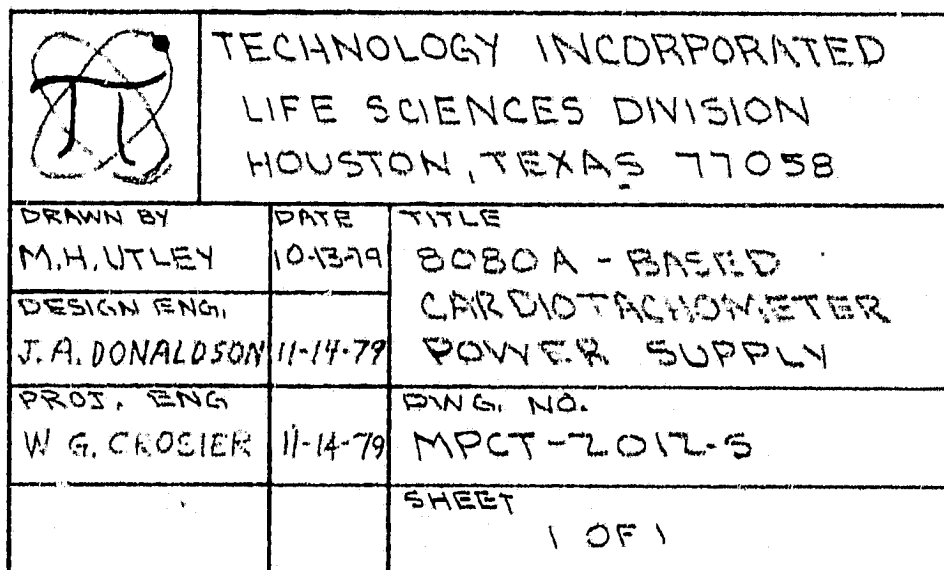 TECHNOLOGY INCORPORATED
LIFE SCIENCES DIVISION
HOUSTON, TEXAS 77058
DRAWN BY
M.H. UTLEY
DATE
10-13-79
TITLE
8080A-BASED
CARDIOTACHOMETER
POWER SUPPLY
DESIGN ENG.
J.A. DONALDSON
11-14-79
PROJ. ENG
W G. CROSIER
11-14-79
DWG. NO.
MPCT-2012-S
SHEET
1 OF 1